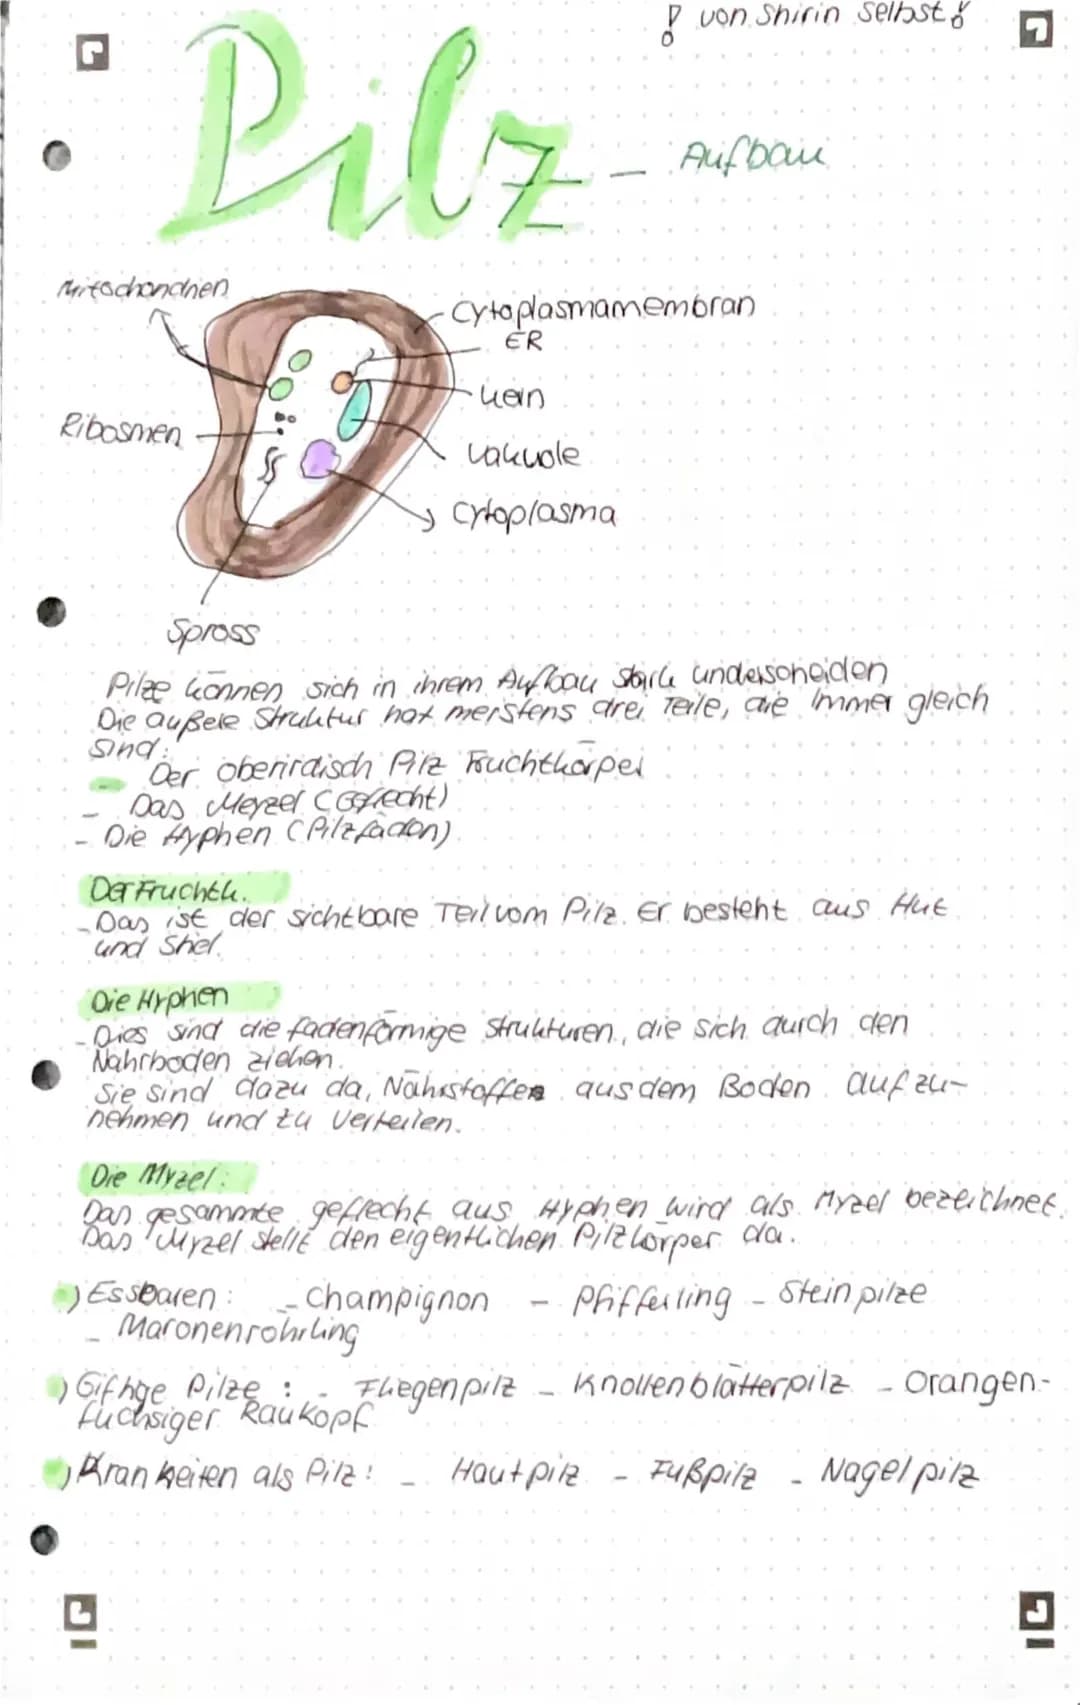 ! von Shirin selbst!
Pilz - Aufbau
Mitochondrien
Cytoplasmamembran
ER
Kern
Ribosmen
Vakuole
Cytoplasma
Spross
Pilze können sich in ihrem Aufbau stark underscheiden
Die äußere Struktur hat meistens drei Teile, die immer gleich
sind:
- Der oberirdisch Pilz Fruchtkörper
- Das Meyzel (Geflecht)
- Die Hyphen (Pilzfäden)
Der Fruchtk.
- Das ist der sichtbare Teil vom Pilz. Er besteht aus Hut
und Stiel.
Die Hyphen
- Dies sind die fadenförmige Strukturen, die sich durch den
Nährboden ziehen.
Sie sind dazu da, Nährstoffe aus dem Boden aufzu-
nehmen und zu verteilen.
Die Myzel:
Das gesammte geflecht aus Hyphen wird als Myzel bezeichnet.
Das Myzel stellt den eigentlichen Pilzkörper da.
•) Essbaren: - Champignon - Pfifferling - Steinpilze
- Maronenröhrling
•) Giftige Pilze: - Fliegenpilz - Knollenblätterpilz - Orangen-
fuchsiger Raukopf
•) Krankeiten als Pilz: - Hautpilz - Fußpilz - Nagelpilz